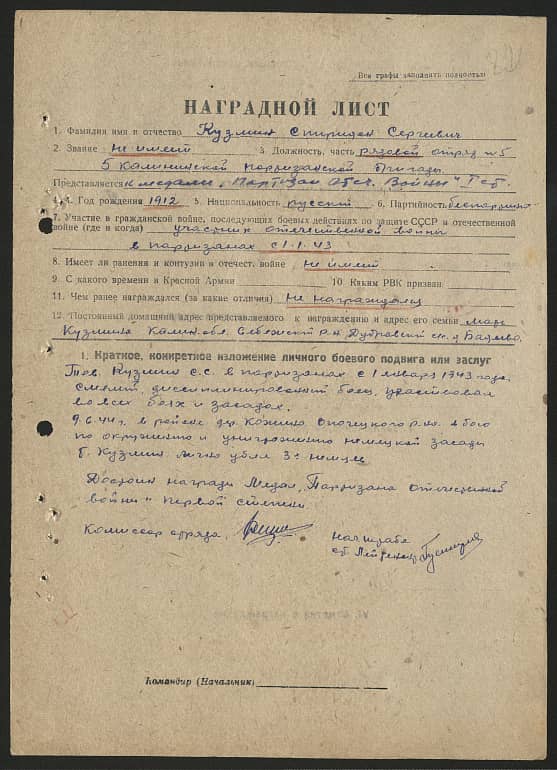 Все графы заполнять полностью
НАГРАДНОЙ ЛИСТ
1. Фамилия имя и отчество Кузмин Спиридон Сергеевич
2. Звание не имеет 3. Должность, часть рядовой отряд №5
5 Калининской парризанской бригады
Представляется к медали „Парризан Отеч. Войны" I ст.
4. Год рождения 1912 5. Национальность русский 6. Партийность беспарт
7. Участие в гражданской войне, последующих боевых действиях по защите СССР и отечественной
войне (где и когда) участник отечественной войны
в парризанах с 1.1.43
8. Имеет ли ранения и контузии в отечест. войне не имеет
9. С какого времени в Красной Армии 10. Каким РВК призван
11. Чем ранее награждался (за какие отличия) Не награждался
12. Постоянный домашний адрес представляемого к награждению и адрес его семьи
Кузмина Калин. обл. Себежский р-н Дубровский
1. Краткое, конкретное изложение личного боевого подвига или заслуг
Тов. Кузмин С.С. в парризанах с 1 января 1943 года,
смелый, дисциплинированный боец, участвовал
во всех боях и засадах.
9.6.44г. в районе дер. Опочецкого р-на в бою
по окружению и уничтожению немецкой засады
т. Кузмин лично убил 3х немцев
Достоин награды Медал. „Парризана Отечественной
войны" первой степени
Комиссар отряда
нач штаба
ст. Лейтенант
Командир (Начальник)